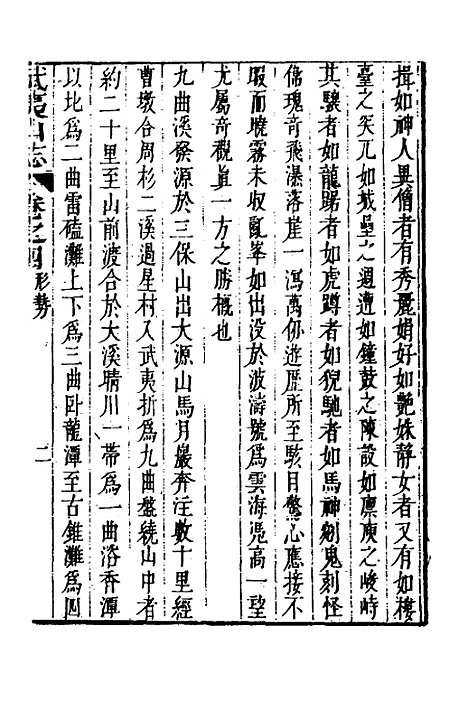 揖如神人異僧者有秀麗娟好如艷姝靜女者又有如樓
臺之突兀如城壘之週遭如鐘鼓之陳設如廩庾之峻峙
其驤者如龍踞者如虎蹲者如猊馳者如馬神剜鬼刻怪
偉瑰奇飛瀑落崖一瀉萬仞遊歷所至駭目驚心應接不
暇而曉霧未收亂峯如出没於波濤號為雲海憑高一望
尤屬奇觀真一方之勝概也
九曲溪發源於三保山出大源山馬月巖奔注數十里經
曹墩合周杉二溪過星村入武夷折為九曲盤繞山中者
約二十里至山前渡合於大溪晴川一帶為一曲浴香潭
以北為二曲雷磕灘上下為三曲卧龍潭至古錐灘為四
武夷山志 卷之四 形勢 二